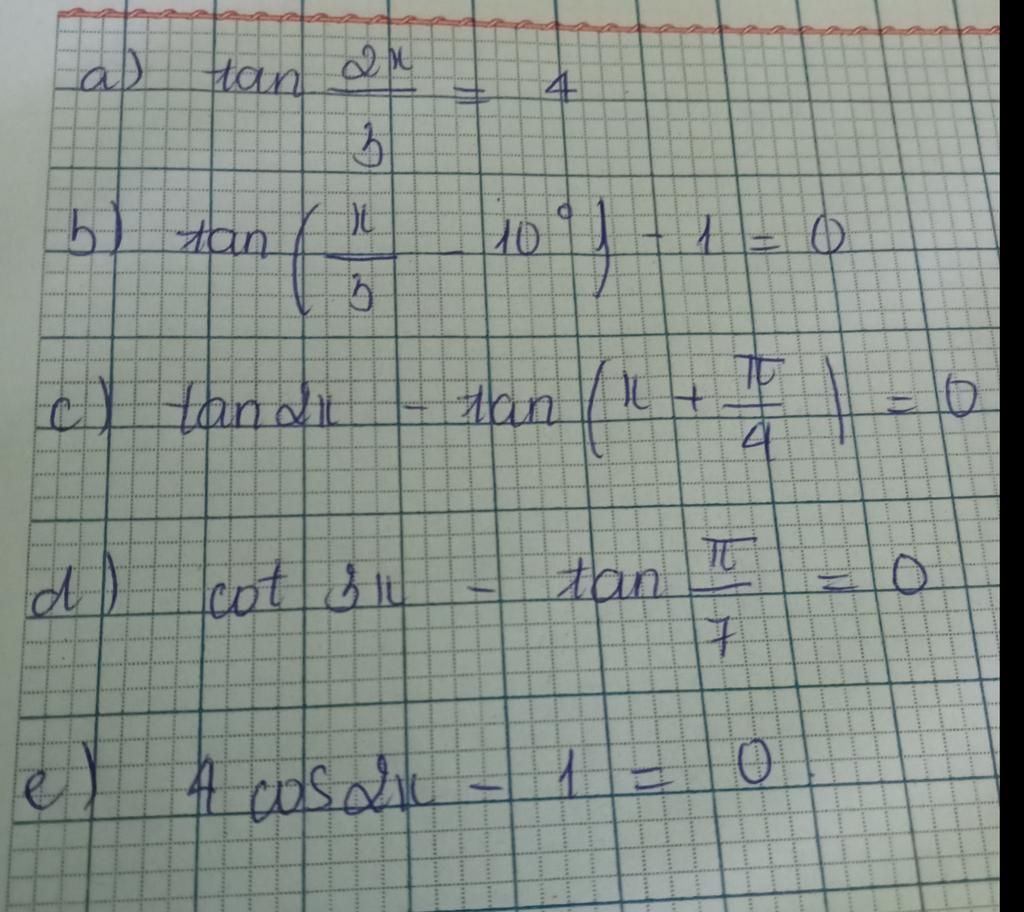 a) tan 2x/3 = 4
b) tan(x/3 - 10°) - 1 = 0
c) tan2x - tan(x + π/4) = 0
d) cot 3x - tan π/7 = 0
e) 4 cos2x - 1 = 0